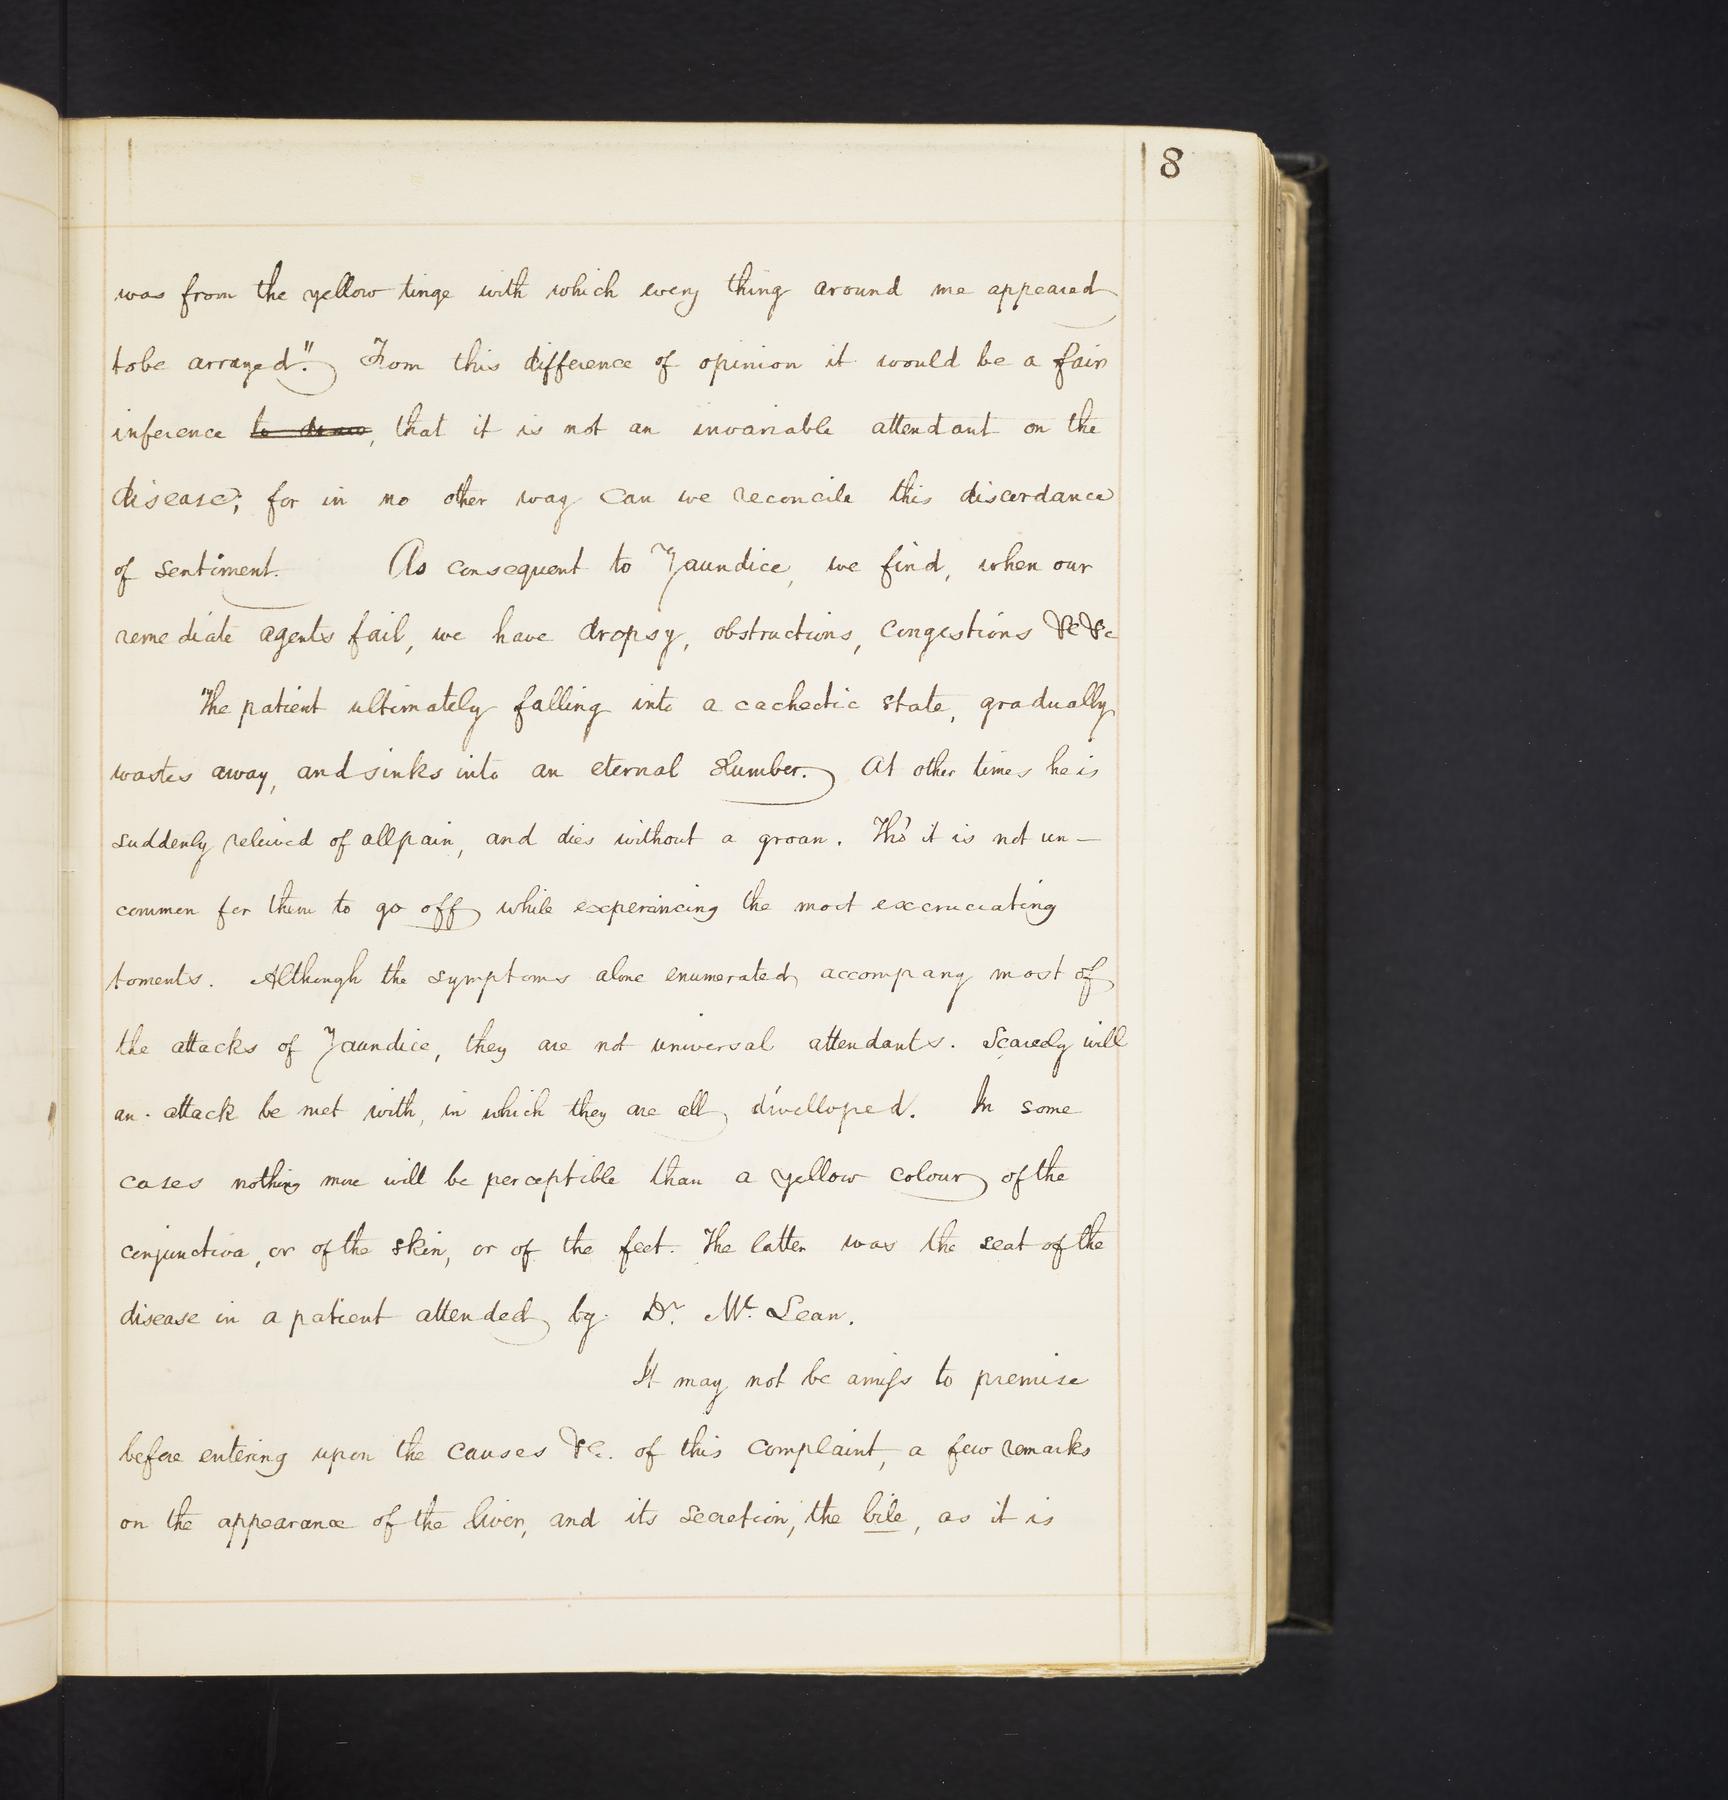 8
was from the yellow tinge with which every thing around me appeared
to be arrayed." From this difference of opinion it would be a fair
inference to draw, that it is not an invariable attendant on the
disease; for in no other way can we reconcile this discordance
of sentiment. As consequent to Jaundice, we find, when our
remediate agents fail, we have dropsy, obstructions, congestions &c &c
The patient ultimately falling into a cachectic state, gradually
wastes away, and sinks into an eternal slumber. At other times he is
suddenly relieved of all pain, and dies without a groan. Tho' it is not un-
common for them to go off while experincing the most excruciating
toments. Although the symptoms alone enumerated accompany most of
the attacks of Jaundice, they are not universal attendants. Scarcely will
an attack be met with, in which they are all divelloped. In some
cases nothing more will be perceptible than a yellow colour of the
conjunctiva, or of the skin, or of the feet. The latter was the seat of the
disease in a patient attended by Dr. Mc. Lean.
It may not be amiss to premise
before entering upon the causes &c. of this complaint, a few remarks
on the appearance of the liver, and its secretion, the bile, as it is